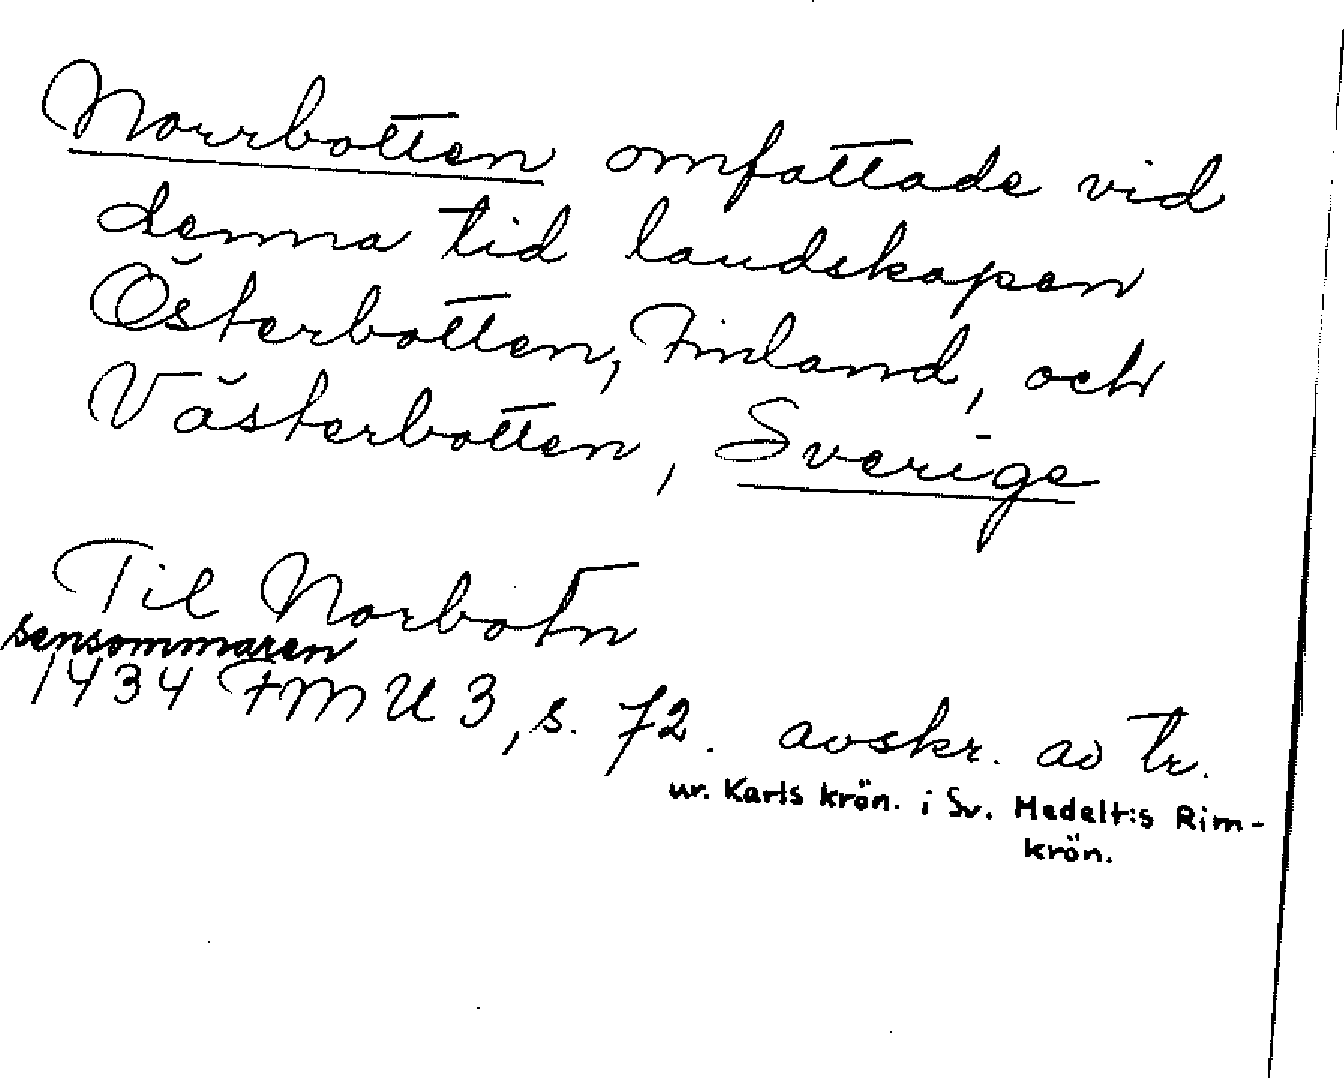 Norrbotten omfattade vid
denna tid landskapen
Österbotten, Finland, och
Västerbotten, Sverige
Til Norbotn
sensommaren
1434 FMU 3, s. 72. avskr. av tr.
ur. Karls krön. i Sv. Medelt:s Rim-
krön.